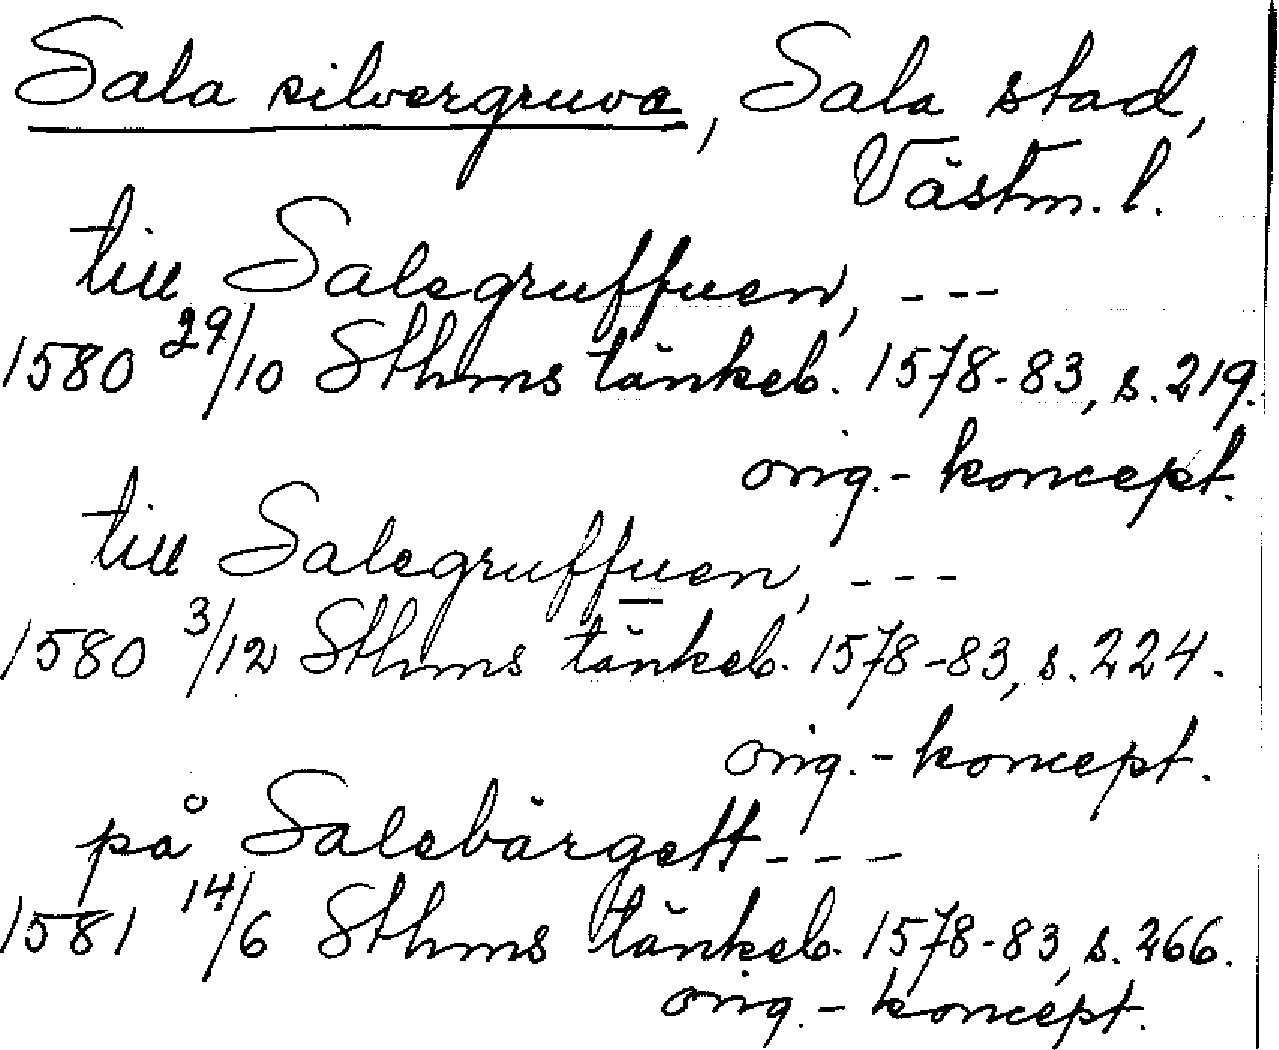 Sala silvergruva, Sala stad,
Västm. l.
till Salegruffuen, ---
1580 29/10 Sthms tänkeb. 1578-83, s. 219.
orig.-koncept.
till Salegruffuen, ---
1580 3/12 Sthms tänkeb. 1578-83, s. 224.
orig.-koncept.
på Salebärgett ---
1581 14/6 Sthms tänkeb. 1578-83, s. 266.
orig.-koncept.